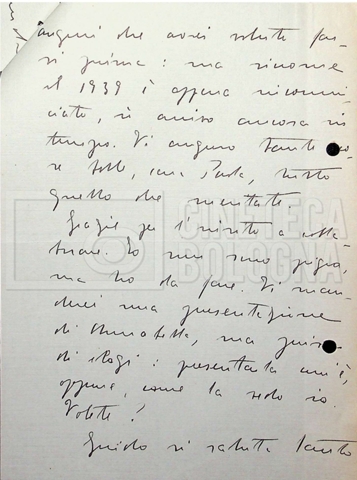 auguri che avrei voluto far-
vi prima: ma siccome
il 1939 è appena incomin-
ciato, si arriva ancora in
tempo. Vi auguro tante co-
se belle, cara Paola, tutto
quello che meritate.
Grazie per l'invito a colla-
borare. Io non sono pigro,
ma ho da fare. Vi man-
derei una presentazione
di Annabella, ma
di elogi: presentarla cioè,
oppure, come la vedo io.
Volete?
Guido vi saluta tanto
CINETECA
BOLOGNA